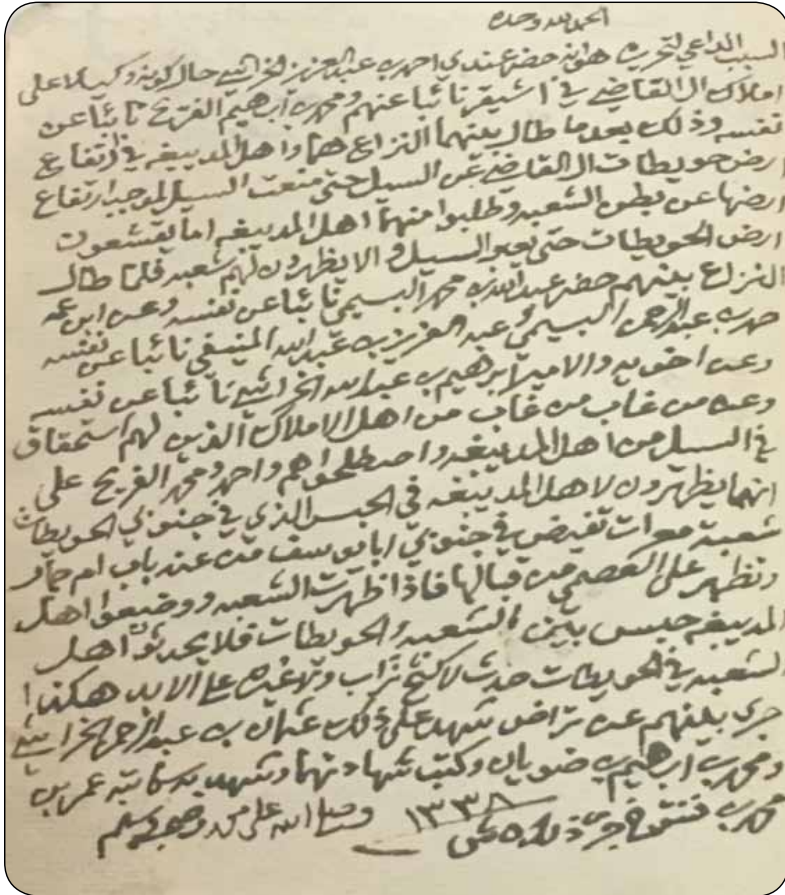 الحمد لله وحده
السبب الداعي لتحريره هو انه حضر عندي احمد بن عبد العزيز الخراشي حال كونه وكيلا على
املاك ال القاضي في اشيقر نائبا عنهم ومحمد بن ابراهيم الفريح نائبا عن
نفسه وذلك بعد ما طال بينهما النزاع هما واهل المديبغه في ارتفاع
ارض حويطات ال القاضي عن السيل حتى منعت السيل الموجب ارتفاع
ارضها عن بطن الشعبه وطلبوا منهما اهل المديبغه اما يقشعون
ارض الحويطات حتى يعبر السيل والا يظهرون لهم شعبه فلما طال
النزاع بينهم حضر عبد الله بن محمد البسيمي نائبا عن نفسه وعن ابن عمه
حمد بن عبد الرحمن البسيمي وعبد العزيز بن عبد الله المنيفي نائبا عن نفسه
وعن اخويه والامير ابراهيم بن عبد الله الخراشي نائبا عن نفسه
وعن من غاب من غاب من اهل الاملاك الذين لهم استحقاق
في السيل من اهل المديبغه واصطلحوا هم واحمد ومحمد الفريح على
انهما يظهرون لاهل المديبغه في الحبس الذي في جنوبي الحويطات
شعبة تفيض في جنوبي ابا يوسف من عند باب ام حمار
وتظهر على من قبالها فاذا ظهرت الشعبه ووضعوا اهل
المديبغه حبس بين الشعبه والحويطات فلا يحدثو اهل
الشعبه في الحويطات حدث لا كنخ تراب ولا غيره على الابد هكذا
جرى بينهم عن تراض شهد على ذلك عثمان بن عبد الرحمن الخراشي
ومحمد بن ابراهيم بن ضويان وكتب شهادتهما وشهد به كاتبه عمر بن
محمد بن فنتوخ جرى ذلك في ١٣٣٨ وصلى الله على محمد وصحبه وسلم